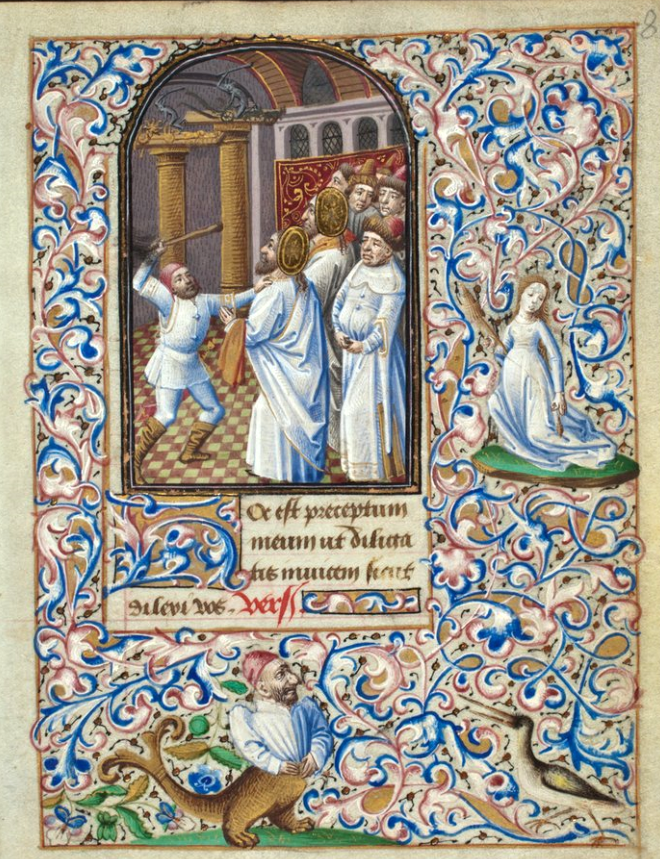 HOc est preceptum
meum ut diliga
tis inuicem sicut
dilexi vos. Vers.